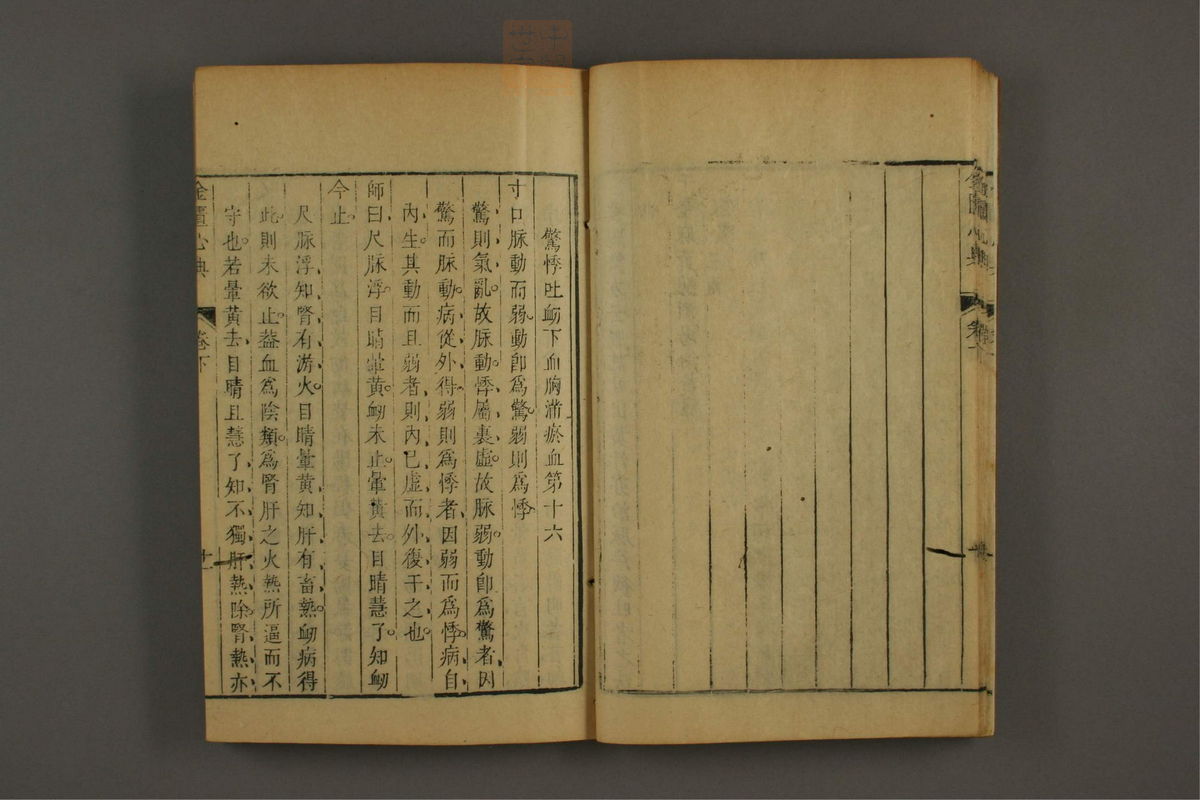 金匱心典
卷下
驚悸吐衂下血胸滿瘀血第十六
寸口脉動而弱。動卽爲驚。弱則爲悸。
驚則氣亂。故脉動。悸屬裏虛。故脉弱。動卽爲驚者、因
驚而脉動、病從外得、弱則爲悸者、因弱而爲悸、病自
內生、其動而且弱者、則內已虛、而外復干之也。
師曰尺脉浮。目睛暈黃。衂未止。暈黃去。目睛慧了。知衂
今止。
尺脉浮、知腎有游火。目睛暈黃、知肝有畜熱。衂病得
此、則未欲止。葢血爲陰類。爲腎肝之火熱所逼而不
守也。若暈黃去、目睛且慧了、知不獨肝熱除。腎熱亦
金匱心典
卷下